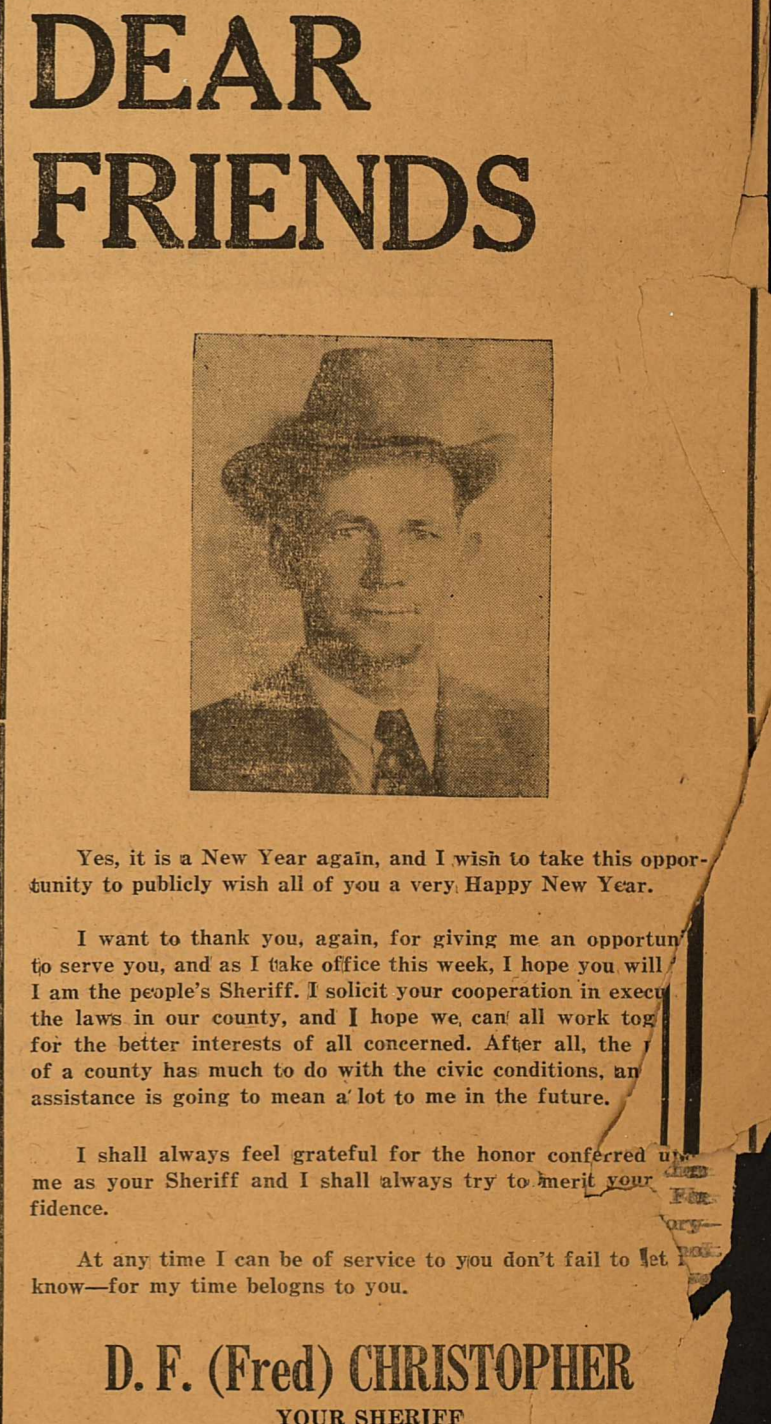 DEAR
FRIENDS
Yes, it is a New Year again, and I wish to take this oppor-
tunity to publicly wish all of you a very Happy New Year.
I want to thank you, again, for giving me an opportun
to serve you, and as I take office this week, I hope you will
I am the people's Sheriff. I solicit your cooperation in execu
the laws in our county, and I hope we can all work tog
for the better interests of all concerned. After all, the
of a county has much to do with the civic conditions, an
assistance is going to mean a lot to me in the future.
I shall always feel grateful for the honor conferred up
me as your Sheriff and I shall always try to merit your
fidence.
At any time I can be of service to you don't fail to let
know—for my time belogns to you.
D. F. (Fred) CHRISTOPHER
YOUR SHERIFF